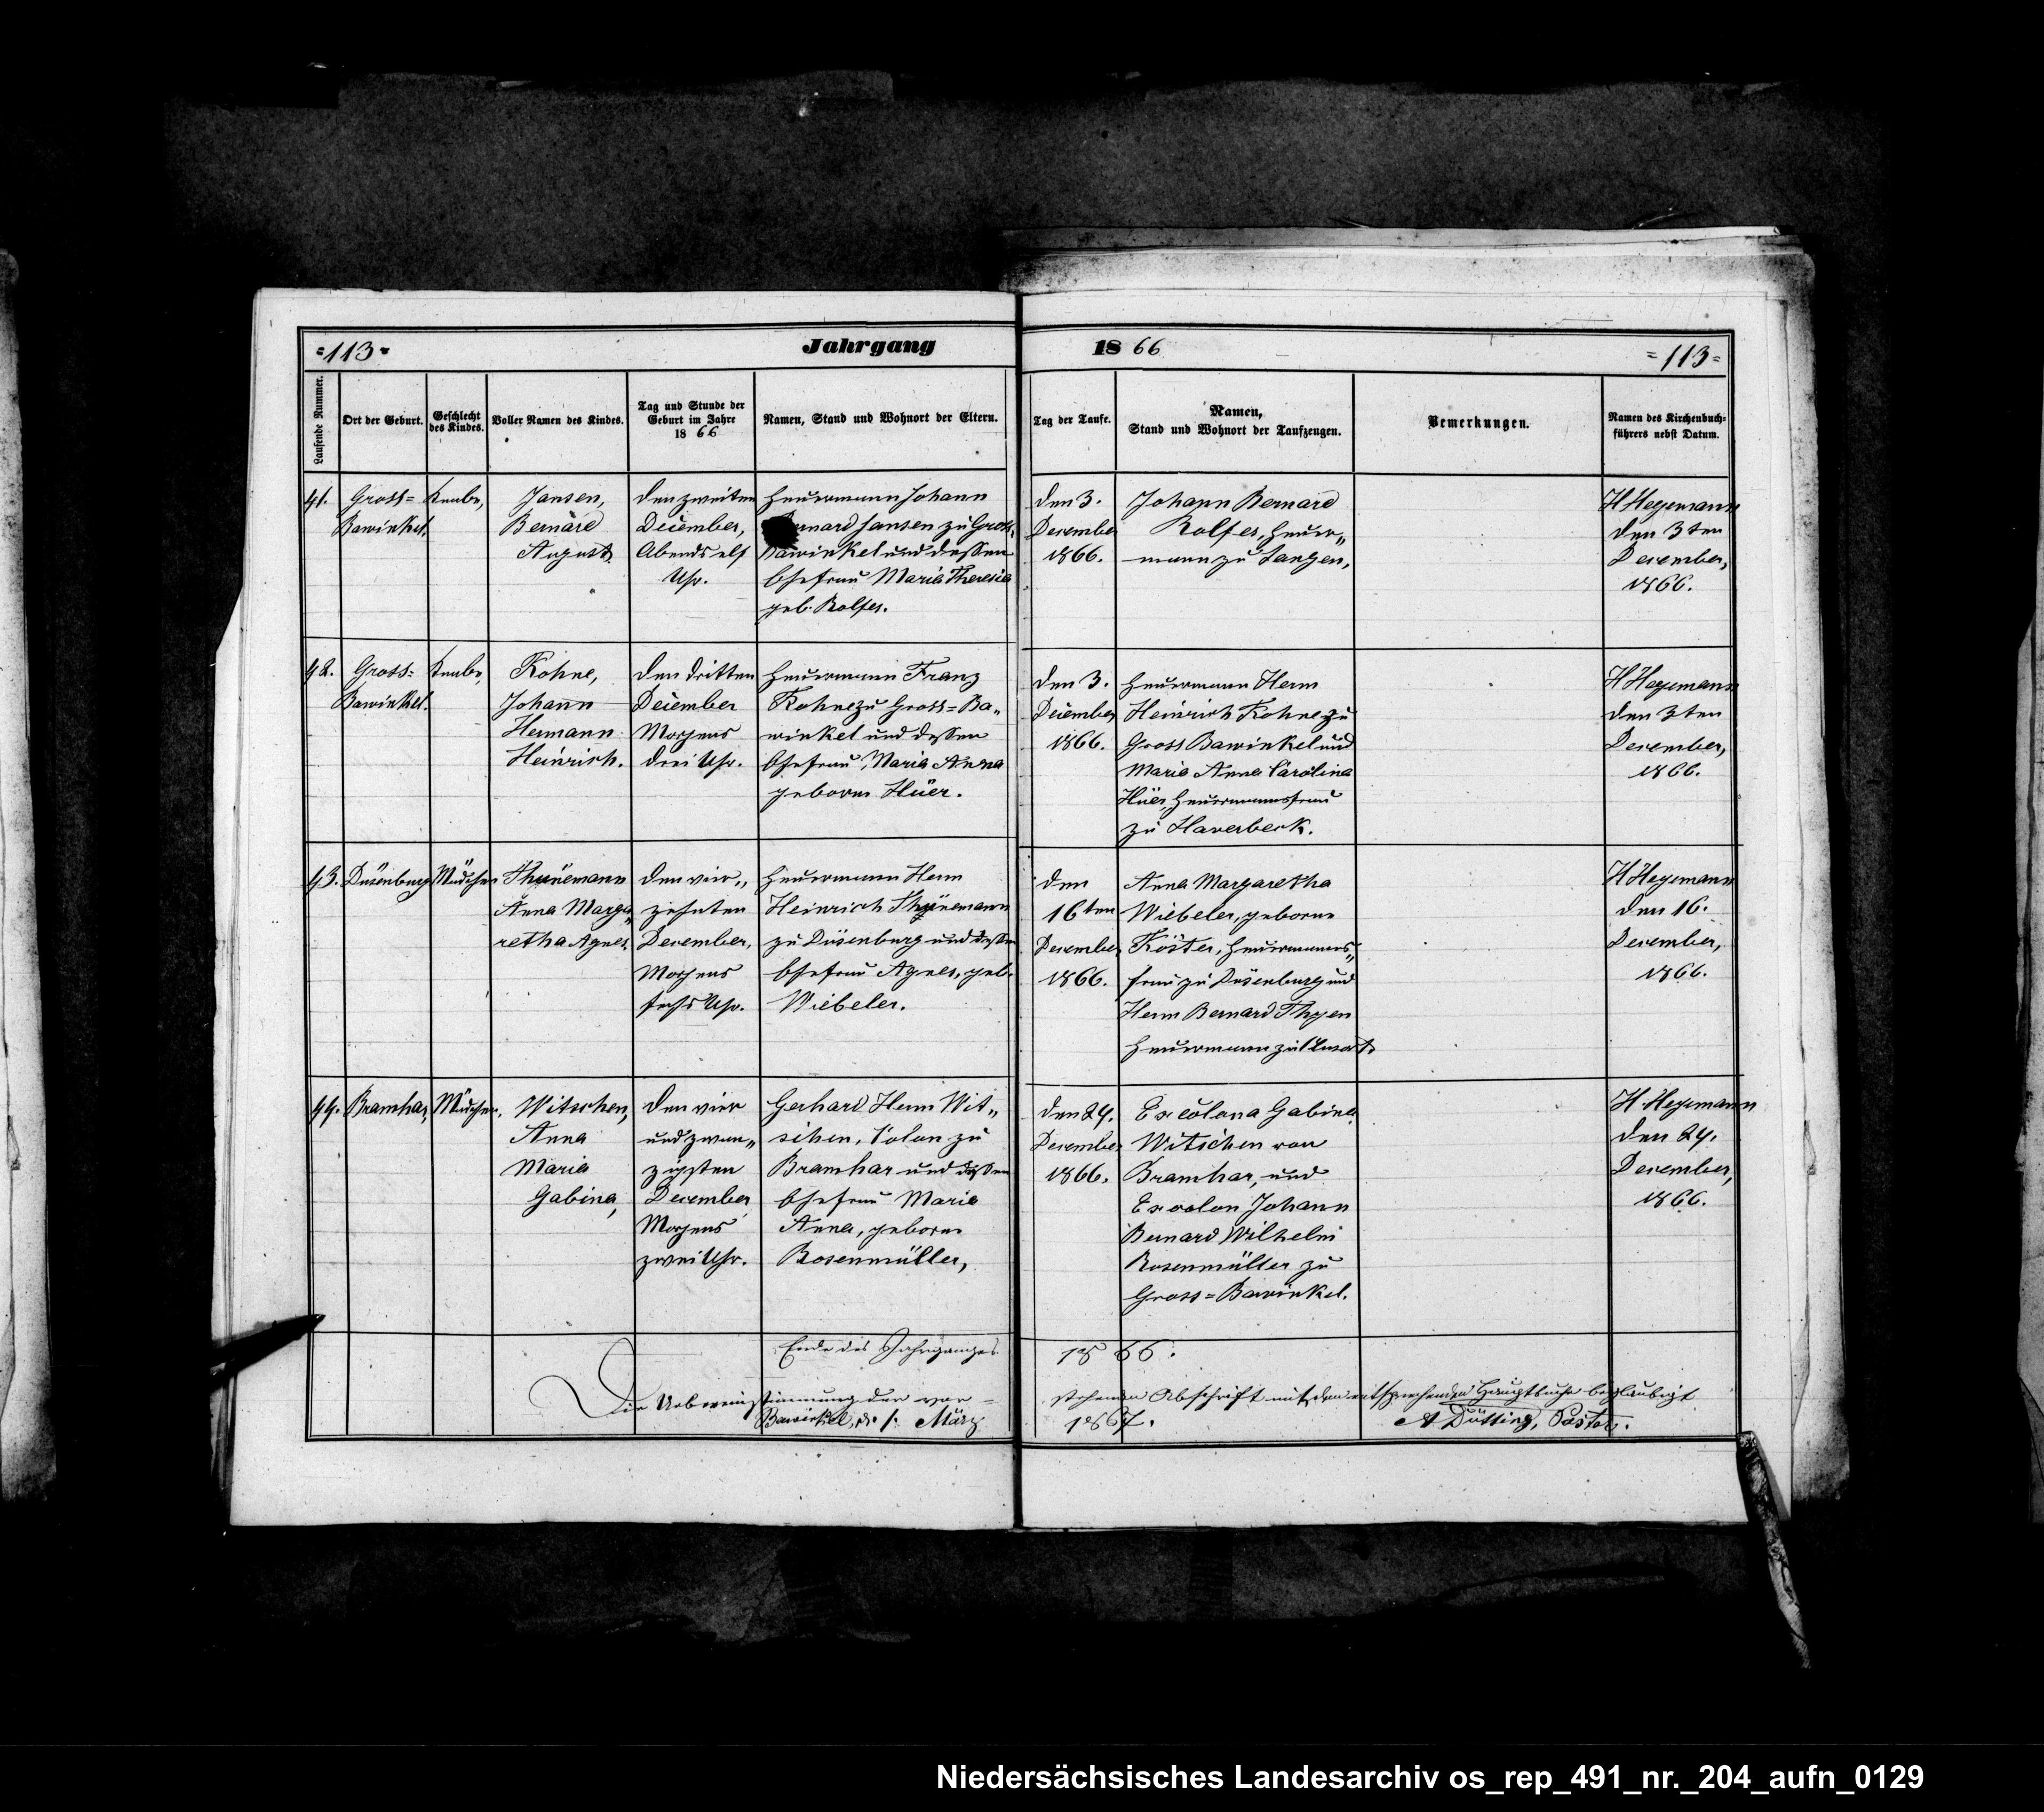 =113=
Jahrgang
1866
=113=
Laufende Nummer.
Ort der Geburt.
Geschlecht
des Kindes.
Voller Namen des Kindes.
Tag und Stunde der
Geburt im Jahre
1866
Namen, Stand und Wohnort der Eltern.
Tag der Taufe.
Namen,
Stand und Wohnort der Taufzeugen.
Bemerkungen.
Namen des Kirchenbuch-
führers nebst Datum.
41.
Gross=
Bawinkel.
Knabe,
Jansen,
Bernard
August.
den zweiten
December,
Abends elf
Uhr.
Heuermann Johann
Bernard Jansen zu Gross-
Bawinkel und dessen
Ehefrau Maria Theresia
geb. Rolfes.
den 3.
December
1866.
Johann Bernard
Rolfes, Heuer„
mann zu Langen,
H Hegemann
den 3ten
December,
1866.
42.
Gross=
Bawinkel.
Knabe,
Kohne,
Johann
Hermann
Heinrich.
den dritten
December
Morgens
drei Uhr.
Heuermann Franz
Kohne zu Gross=Ba„
winkel und dessen
Ehefrau, Maria Anna
geborne Hüer.
den 3.
December
1866.
Heuermann Herm
Heinrich Kohne zu
Gross Bawinkel und
Maria Anna Carolina
Hüer, Heuermannsfrau
zu Haverbeck.
H Hegemann
den 3ten
December,
1866.
43.
Düsenburg
Mädchen
Thünemann
Anna Marga„
retha Agnes.
den vier„
zehnten
December,
Morgens
sechs Uhr.
Heuermann Herm
Heinrich Thünemann
zu Düsenburg und dessen
Ehefrau Agnes, geb.
Wiebeler.
den
16ten
December
1866.
Anna Margaretha
Wiebeler, geborne
Köster, Heuermanns„
frau zu Düsenburg und
Herm Bernard Thyen
Heuermann zu
H Hegemann
den 16.
December,
1866.
44.
Bramhar,
Mädchen,
Witschen,
Anna
Maria
Gabina,
den vier
und zwan„
zigsten
December
Morgens
zwei Uhr.
Gerhard Herm Wit„
schen, Colon zu
Bramhar und dessen
Ehefrau Maria
Anna, geborne
Rosenmüller,
den 24.
December
1866.
Excolona Gabina
Witschen von
Bramhar, und
Excolon Johann
Bernard Wilhelm
Rosenmüller zu
Gross=Bawinkel.
H. Hegemann
den 24.
December,
1866.
Ende des Jahrganges 1866.
Die Uebereinstimmung der vor-stehenden Abschrift mit dem entsprechenden Hauptbuche beglaubigt
Bawinkel, d. 1. März 1867. A Dütting, Pastor.
Niedersächsisches Landesarchiv os_rep_491_nr._204_aufn_0129